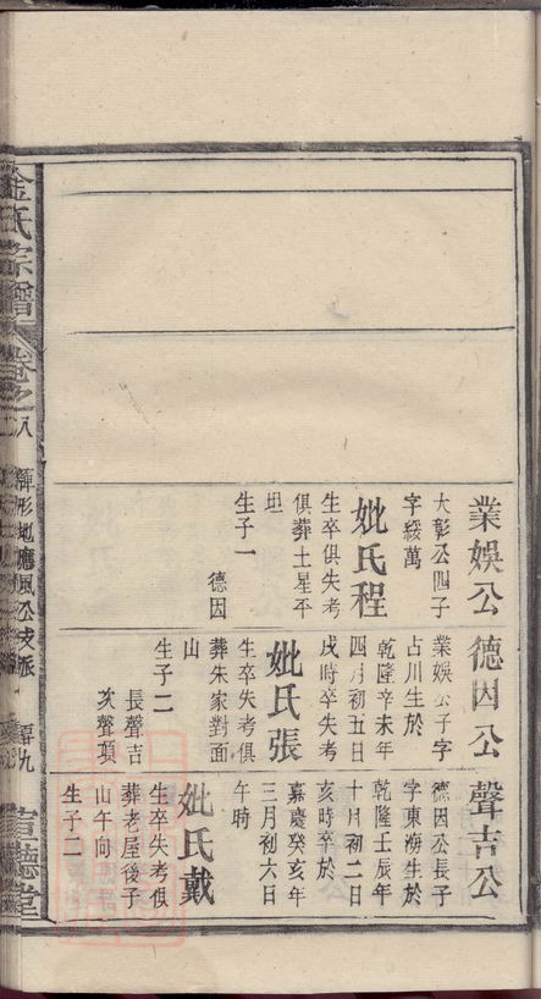 業娛公
大彰公四子
字綏萬
妣氏程
生卒俱失考
俱葬土星平
坦
生子一
德因
德因公
業娛公子字
占川生於
乾隆辛未年
四月初五日
戌時卒失考
妣氏張
生卒失考俱
葬朱家對面
山
生子二
長聲吉
次聲項
聲吉公
德因公長子
字東海生於
乾隆壬辰年
十月初二日
亥時卒於
嘉慶癸亥年
三月初六日
午時
妣氏戴
生卒失考俱
葬老屋後子
山午向
生子二
金氏宗譜
卷之八
地應風公支派
宣德堂